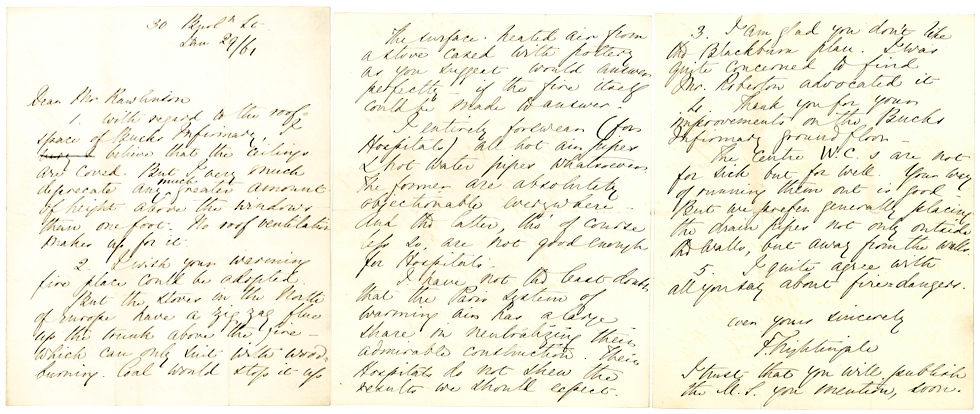 30 Burl^n St.
Jan 29/61
Dear Mr Rawlinson
1. With regard to the roof-
space of Bucks Infirmary,
believe that the ceilings
are coved. But I very much
deprecate any much greater amount
of height above the windows
than one foot. No roof ventilation
makes up for it.
2. I wish your warming
fire place could be adopted.
But the stoves in the North
of Europe have a zig zag flue
up the trunk above the fire -
which can only suit with wood-
burning. Coal would stop it up
The surface-heated air from
a stove cased with pottery
as you suggest would answer
perfectly - if the fire itself
could be made to answer.
I entirely forswear (for
Hospitals) all hot air pipes
& hot water pipes whatsoever
The former are absolutely
objectionable everywhere -
And the latter, tho' of course
less so, are not good enough
for Hospitals.
I have not the least doubt
that the Paris system of
warming air has a large
share in neutralizing their
admirable construction. Their
Hospitals do not shew the
results we should expect.
3. I am glad you don't like
the Blackburn plan. I was
quite concerned to find
Mr. Roberton advocated it
4. Thank you for your
improvements on the Bucks
Infirmary ground floor -
The centre W.C.s are not
for sick but for well. Your way
of running them out is good
But we prefer generally placing
the drain pipes not only outside
the walls, but away from the walls.
5. I quite agree with
all you say about fire-dangers.
ever yours sincerely
F. Nightingale
I trust that you will publish
the M.S. you mention, soon.